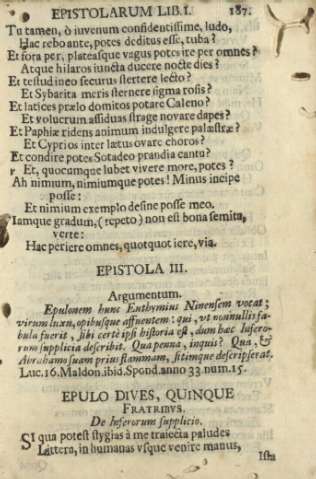 EPISTOLARUM LIB. I. 187.
Tu tamen, ò iuvenum confidentissime, ludo,
Hac reboante, potes deditus esse, tuba?
Et fora per, plateasque vagus potes ire per omnes?
Atque hilaros iuncta ducere nocte dies?
Et testudineo securus stertere lecto?
Et Sybarita meris sternere sigma rosis?
Et latices prælo domitos potare Caleno?
Et volucrum assiduas strage novare dapes?
Et Paphiæ ridens animum indulgere palæstræ?
Et Cyprios inter lætus ovare choros?
Et condire potes Sotadeo prandia cantu?
Et, quocumque lubet vivere more, potes?
Ah nimium, nimiumque potes! Minus incipe
posse:
Et nimium exemplo desine posse meo.
Iamque gradum, (repeto) non est bona semita,
verte:
Hac periere omnes, quotquot iere, via.
EPISTOLA III.
Argumentum.
Epulonem hunc Euthymius Ninensem vocat;
virum luxu, opibusque affluentem: qui, ut nonnullis fa-
bula fuerit, sibi certè ipsi historia est, dum hæc Infero-
rum supplicia describit. Qua penna, inquis? Qua, &
Abraham o suam prius flammam, sitimque descripserat.
Luc. 16. Maldon. ibid. Spond. anno 33. num. 15.
EPULO DIVES, QUINQUE
FRATRIBUS.
De Inferorum supplicio.
SI qua potest stygias à me traiecta paludes
Littera, in humanas usque venire manus,
Ista